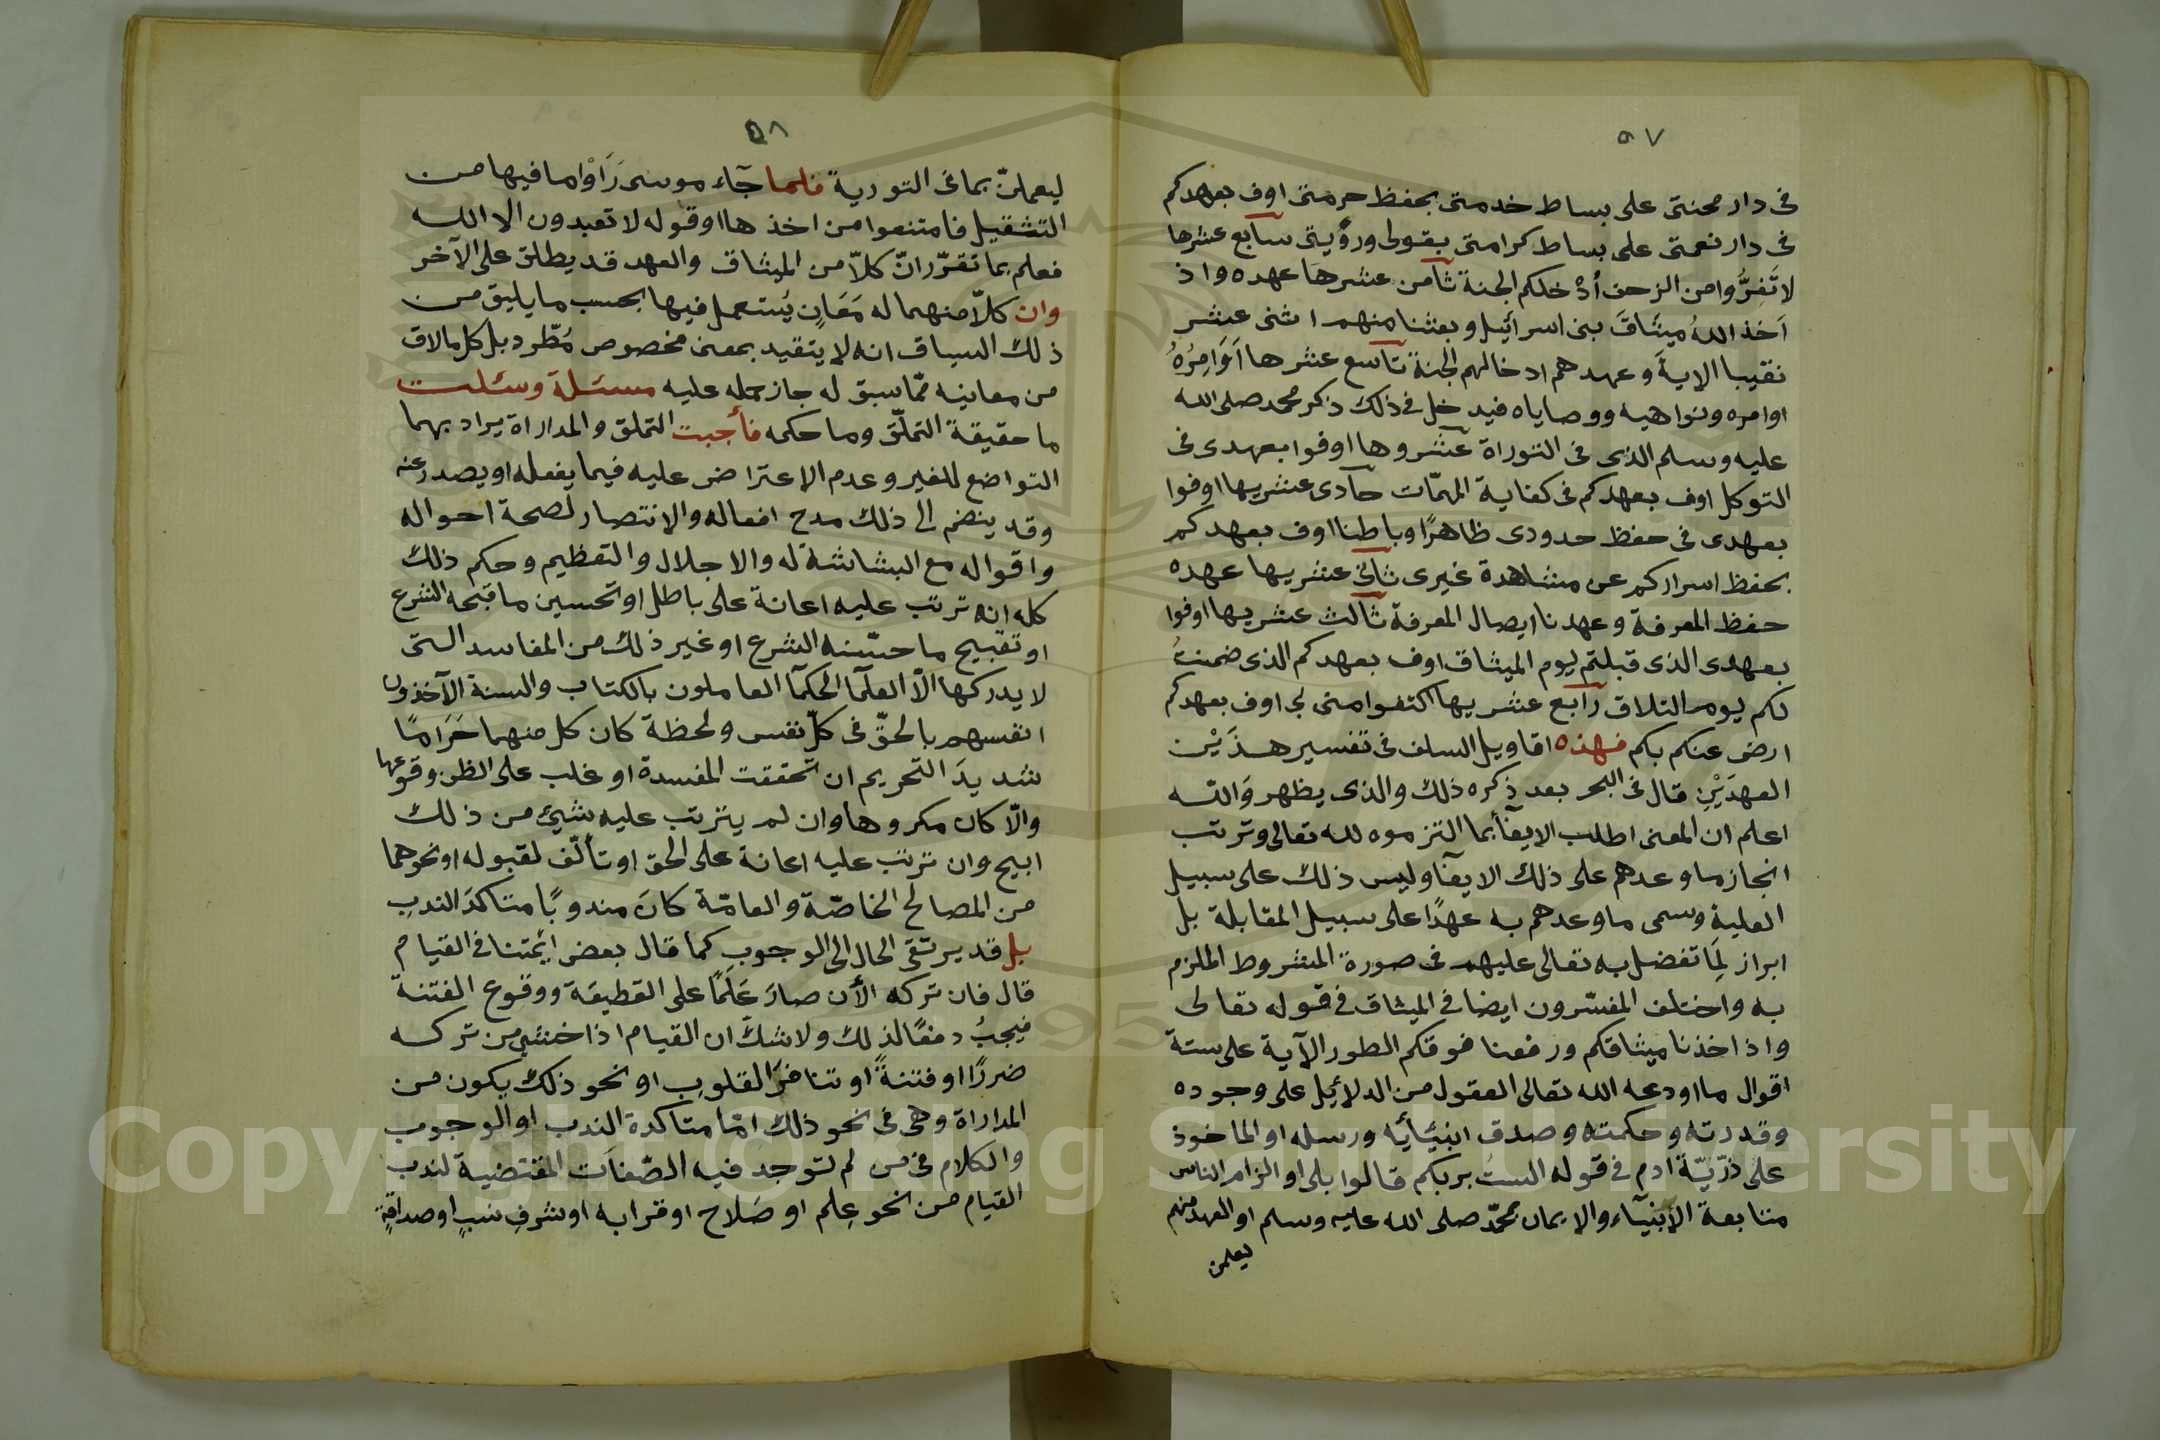 ٥٧
فى دار محنتى على بساط خدمتى بحفظ حرمتى اوف بعهدكم
فى دار نعمتى على بساط كرامتى بقولى ورؤيتى سابع عشرها
لا تَفرُّوا من الزحف أدْخلكم الجنة ثامن عشرها عهده واذ
اَخذ اللهُ ميثَاقَ بنى اسرائيل وبعثنا منهم اثنى عشر
نقيبا الايةَ وعهدهم ادخالهم الجنة تاسع عشرها اَوَامِرُهُ
اوامره ونواهيه ووصاياه فيدخل فى ذلك ذكر محمد صلى الله
عليه وسلم الذى فى التوراة عشروها اوفوا بعهدى فى
التوكل اوف بعهدكم فى كفاية المهمّات حادى عشريها اوفوا
بعهدى فى حفظ حدودى ظاهرًا وباطنا اوف بعهدكم
بحفظ اسراركم عن مشاهدة غيرى ثانى عشريها عهده
حفظ المعرفة وعهدنا ايصال المعرفة ثالث عشريها اوفوا
بعهدى الذى قبلتم يوم الميثاق اوف بعهدكم الذى ضمنتُ
لكم يوم التلاق رابع عشريها اكتفوا منى بى اوف بعهدكم
ارض عنكم بكم فهذه اقاويل السلف فى تفسير هذَيْن
العهدَيْنِ قال فى البحر بعد ذكره ذلك والذى يظهر وَاللّه
اعلم ان المعنى اطلب الايفآ بما التزموه لله تعالى وترتب
انجاز ما وعدهم على ذلك الايفآ وليس ذلك على سبيل
العلية وسمى ما وعدهم به عهدًا على سبيل المقابلة بل
ابراز لِمَا تفضل به تعالى عليهم فى صورة المشروط الملزم
به واختلف المفسّرون ايضا فى الميثاق فى قوله تعالى
واذ اخذنا ميثاقكم ورفعنا فوقكم الطور الآية على ستة
اقوال ما اودعه الله تعالى العقول من الدلائيل على وجوده
وقدرته وحكمته وصدق انبيَائه ورسله او الماخوذ
على ذرّيّة ادم فى قوله الستُ بربكم قالوا بلى او الزام الناس
متابعة الأنبيآء والايمان بمحمّد صلى الله عليه وسلم او العهد منهم
ليعلمن
٥٨
ليعملنّ بما فى التورية فلما جآء موسى رَأوْا ما فيها من
التثقيل فامتنعوا من اخذها او قوله لا تعبدون الا الله
فعلم بما تقرّر انّ كلاّ من الميثاق والعهد قد يطلق على الآخر
وان كلاّ منهما له مَعَانٍ يُستعمل فيها بحسب ما يليق من
ذلك السياق انه لا يتقيد بمعنى مخصوص مُطّرد بل كل ما لاق
من معانيه ممّا سبق له جاز حمله عليه مسئلة وسئلت
ما حقيقة التملّق وما حكمه فأجبت التملق والمداراة يراد بهما
التواضع للغير وعدم الاعتراض عليه فيما يفعله او يصدر عنه
وقد ينضم الى ذلك مدح افعاله والانتصار لصحة احواله
واقواله مع البشاشة له والاجلال والتعظيم وحكم ذلك
كله انه ترتب عليه اعانة على باطل او تحسين ما قبحه الشرع
او تقبيح ما حسّنه الشرع او غير ذلك من المفاسد التى
لا يدركها الّا العلمآ الحكمآ العاملون بالكتاب والسنة الآخذون
انفسهم بالحقّ فى كلّ نفس ولحظة كان كل منهما حَرَامًا
شديدَ التحريم ان تحققت المفسدة او غلب على الظن وقوعها
والّا كان مكروها وان لم يترتب عليه شئ من ذلك
ابيح وان ترتب عليه اعانة على الحق او تألّف لقبوله او نحوهما
من المصالح الخاصّة والعامّة كانَ مندوبًا متاكدَ الندبِ
بل قد يرتقى الحال الى الوجوب كما قال بعض ائمتنا فى القيام
قال فان تركه الأن صارَ عَلَمًا على القطيعَة ووقوع الفتنة
فيجبُ دفعًا لذلك ولا شكّ ان القيام اذا خشى من تركه
ضررًا او فتنةً او تنافرَ القلوبِ او نحو ذلك يكون من
المداراة وهى فى نحو ذلك امّا متاكدة الندب او الوجوب
والكلام فى من لم توجد فيه الصّفات المقتضية لندب
القيام من نحو عِلم او صَلاح او قرابه او شرفِ نسبٍ او صداقةٍ
Copyright © King Saud University
1957